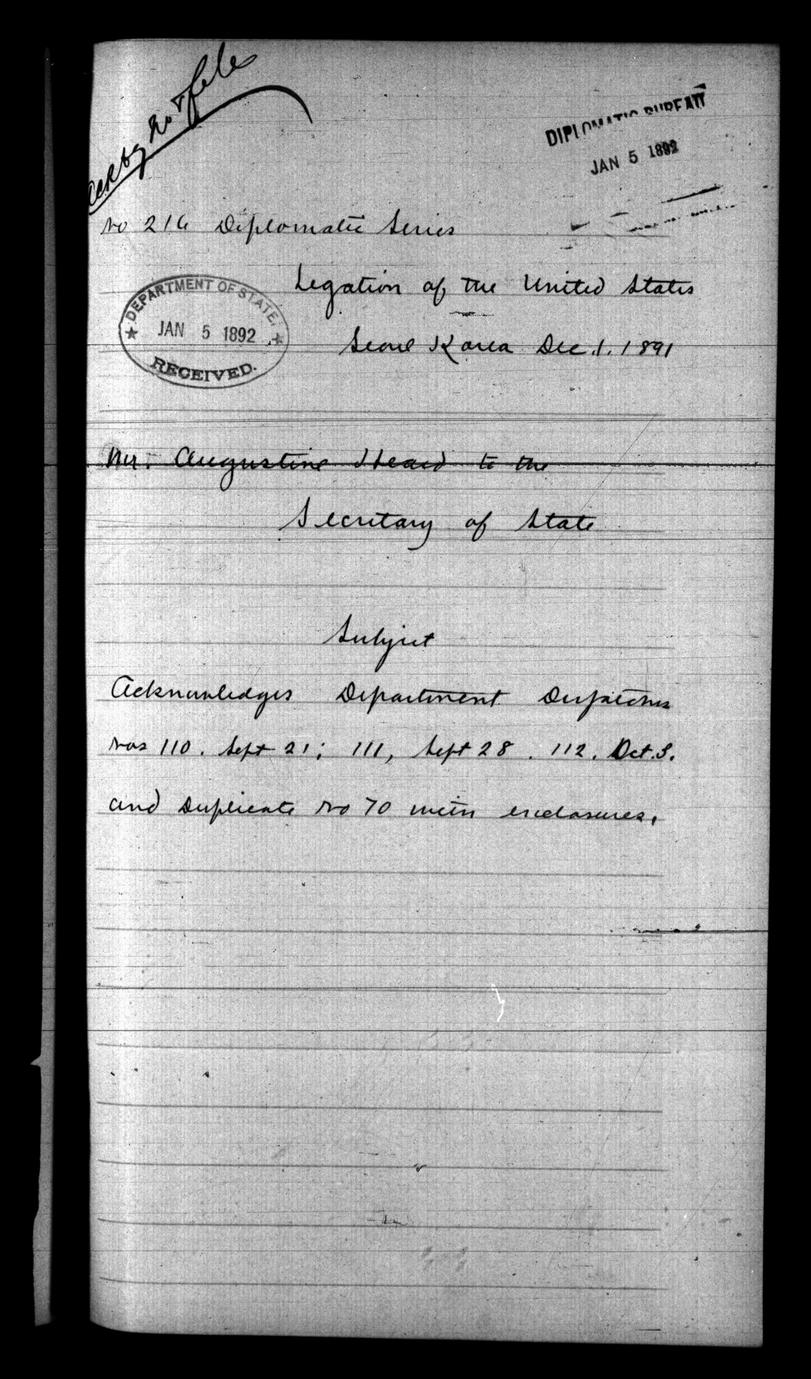 Ack by No & file
DIPLOMATIC BUREAU
JAN 5 1892
No 216 Diplomatic Series
Legation of the United States
DEPARTMENT OF STATE.
JAN 5 1892
RECEIVED.
Seoul Korea Dec. 1. 1891
Mr. Augustine Heard to the
Secretary of State
Subject
Acknowledges Department Despatches
Nos 110. Sept 21; 111, Sept 28. 112. Oct. 3.
and Duplicate No 70 with enclosures.